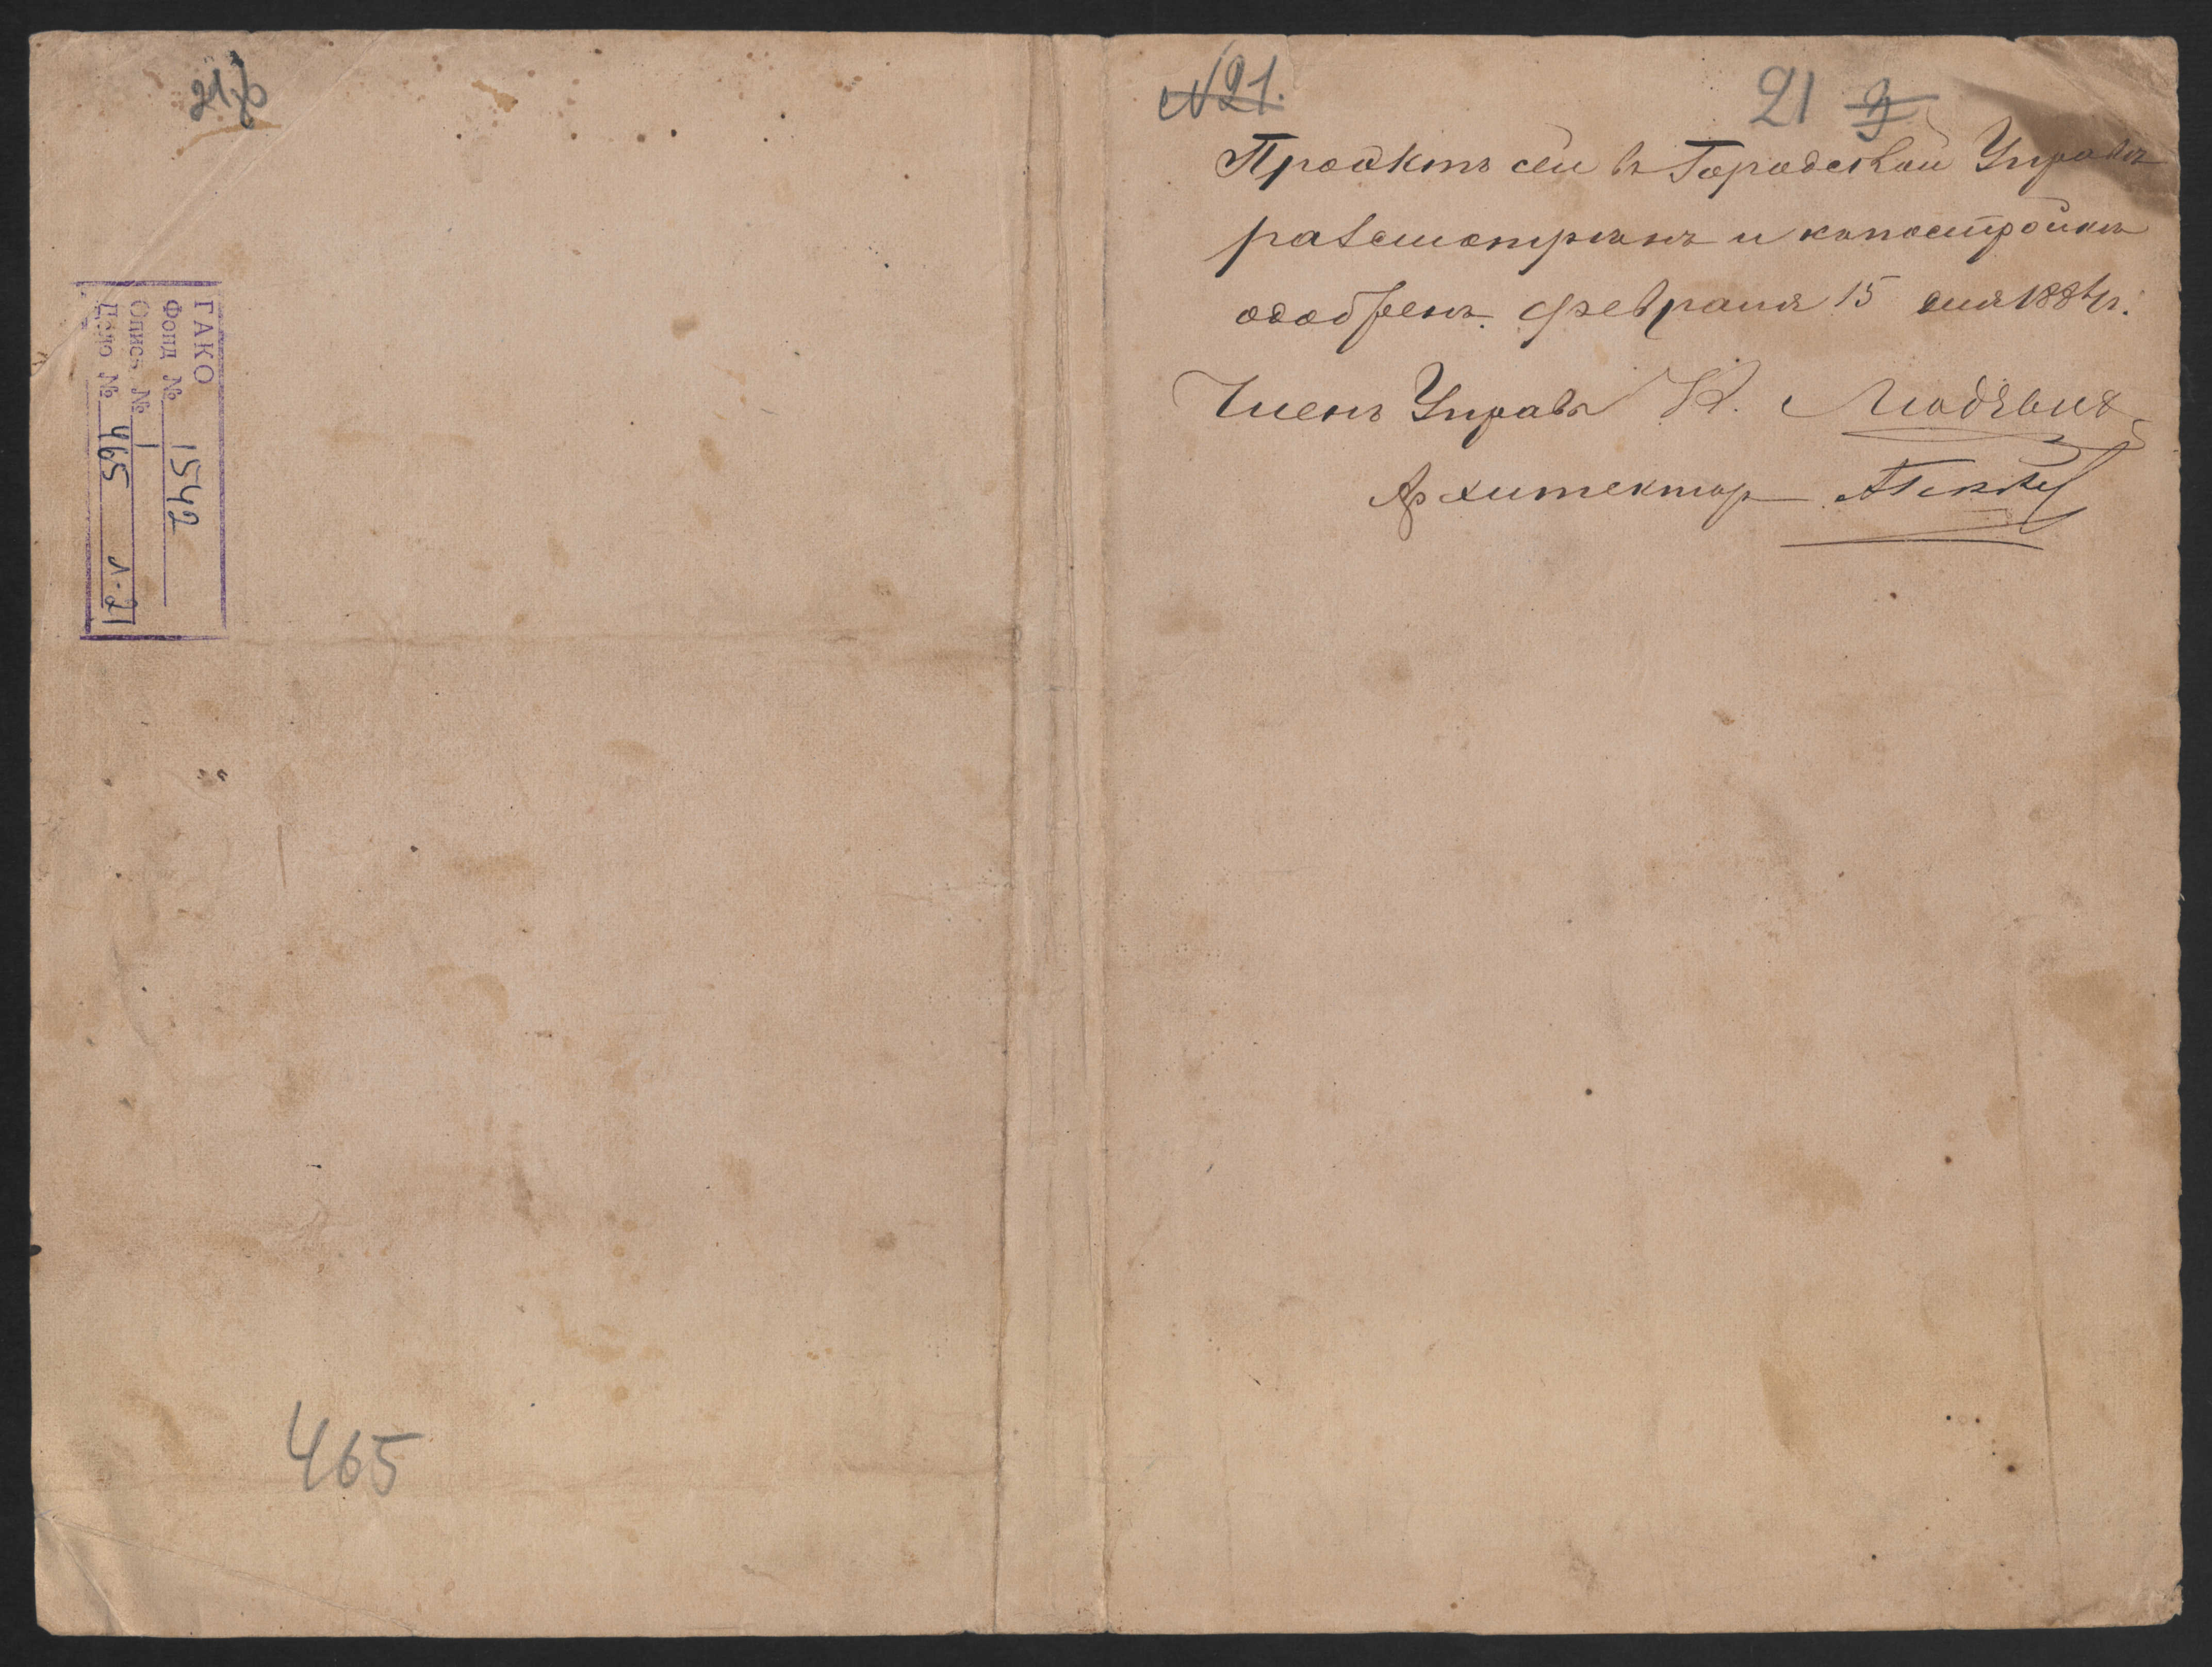 ГАКО
Фонд № 1542
Опись № 1
Дело № 465 л. 21
465
№ 21.
21
Проэктъ сей въ Городской Управѣ
разсмотрѣнъ и къ постройкѣ
одобренъ. февраля 15 дня 188 г.
Членъ Управы
Архитекторъ